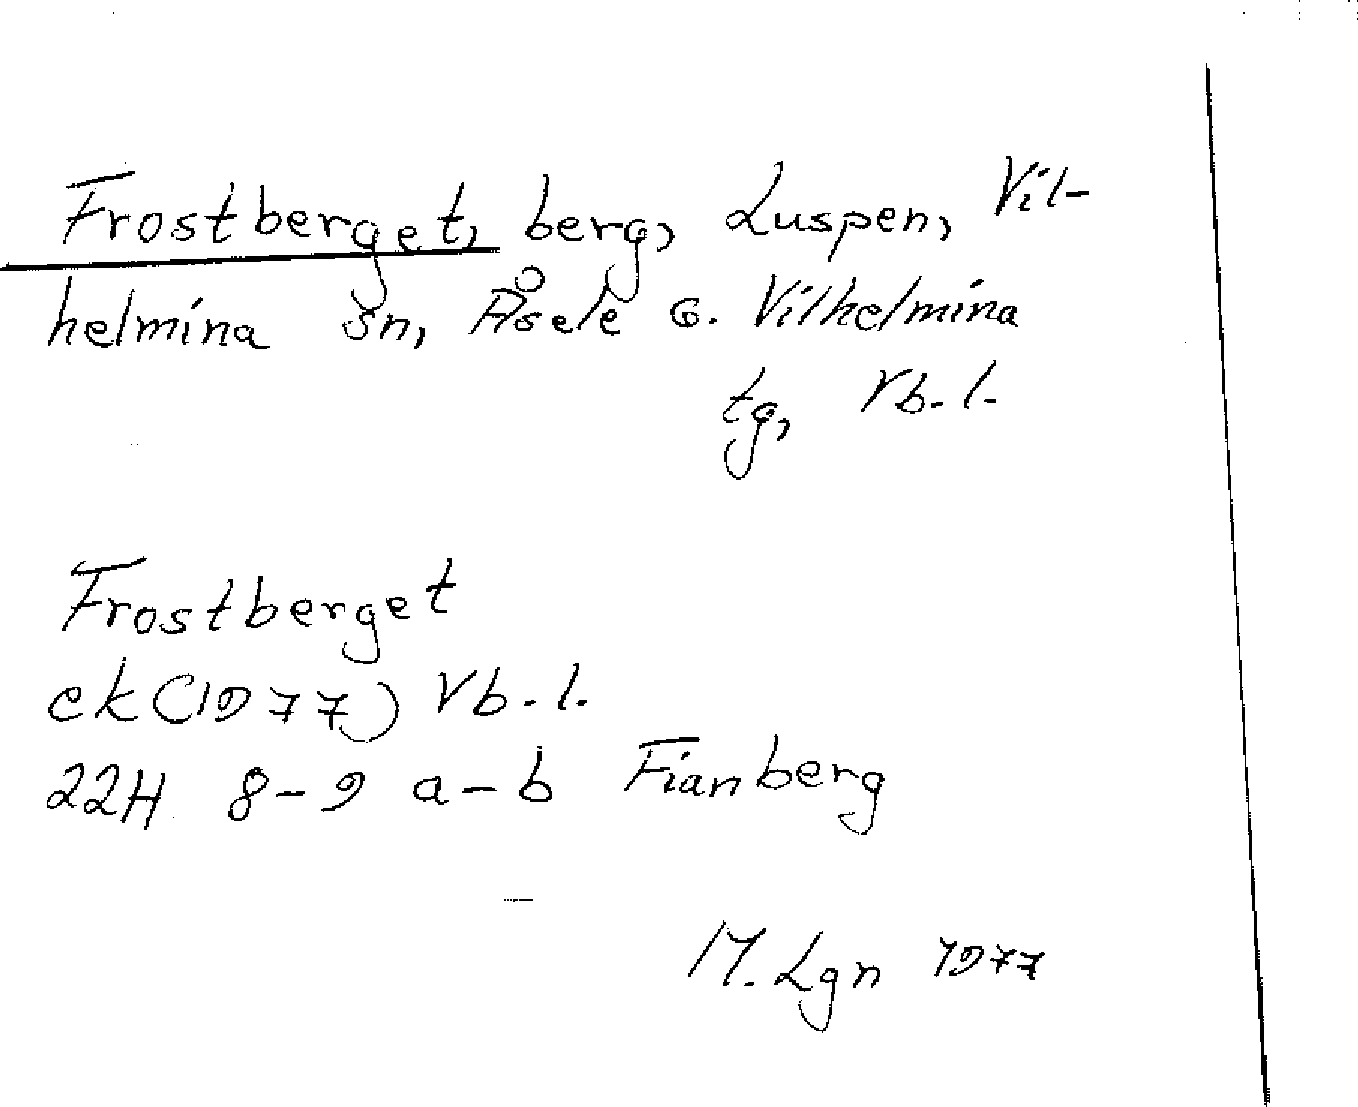 Frostberget, berg, Luspen, Vil-
helmina sn, Åsele o. Vilhelmina
tg, Vb. l.
Frostberget
ek (1977) Vb. l.
22H 8-9 a-b Fianberg
M. Lgn 1977